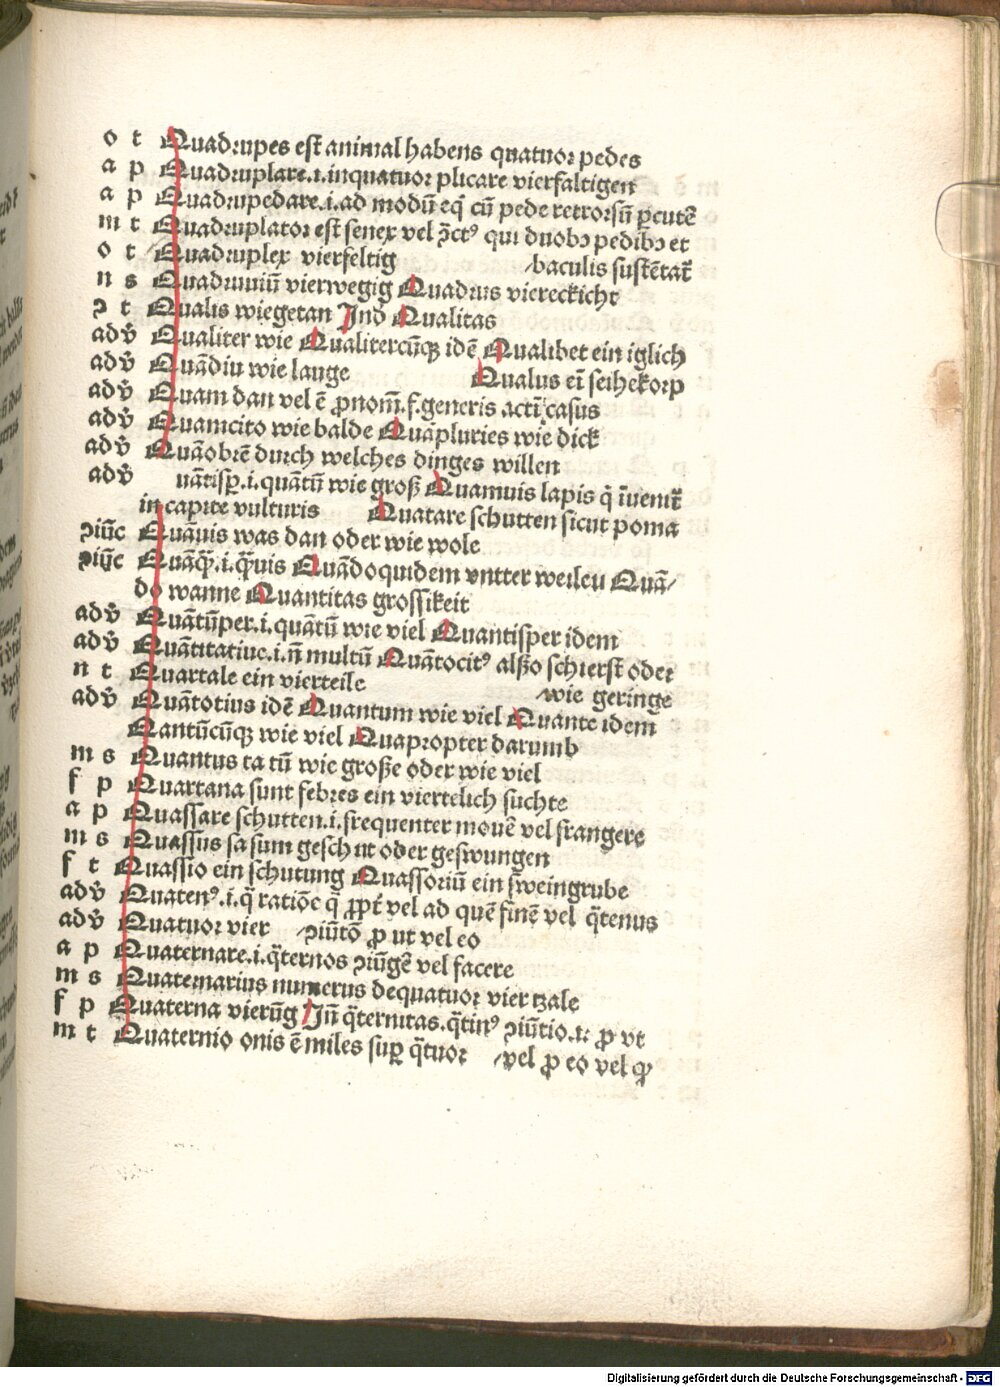 o t Quadrupes est animal habens quatuor pedes
a p Quadruplare.i.inquatuor plicare vierfaltigen
a p Quadrupedare.i.ad modū eq̄ cū pede retrorsū ꝑcutē
m t Quadruplator est senex vel ꝯ̄ctꝰ qui duobꝫ pedibꝫ et
o t Quadruplex vierfeltig baculis sustētat̄
n s Quadruuiū vierwegig Quadrus viereckicht
ꝯ t Qualis wiegetan Ind Qualitas
adv̄ Qualiter wie Qualitercūqꝫ idē Qualibet ein iglich
adv̄ Quādiu wie lange Qualus eī seihekorp
adv̄ Quam dan vel ē ꝓnom̄.f.generis acti casus
adv̄ Quamcito wie balde Quāpluries wie dick
adv̄ Quāobrē durch welches dinges willen
adv̄ uātisꝑ.i.quātū wie groß Quamuis lapis q̄ īuenit̄
in capite vulturis Quatare schutten sicut poma
ꝯiūc Quāuis was dan oder wie wole
ꝯiūc Quāqꝫ.i.q̄uis Quādoquidem vntter weilen Quā/
do wanne Quantitas grossikeit
adv̄ Quātūper.i.quātū wie viel Quantisper idem
adv̄ Quātitatiue.i.ī multū Quātocitꝰ alßo schierst oder
n t Quartale ein vierteile wie geringe
adv̄ Quātotius idē Quantum wie viel Quante idem
Qantūcūqꝫ wie viel Quapropter darumb
m s Quantus ta tū wie große oder wie viel
f p Quartana sunt febres ein viertelich suchte
a p Quassare schutten.i.frequenter mouē vel frangere
m s Quassus sa sum geschut oder geswungen
f t Quassio ein schutung Quassoriū ein s̄weingrube
adv̄ Quatenꝰ.i.q̄ ratiōe q̄ ꝓpt̄ vel ad quē finē vel q̄tenus
adv̄ Quatuor vier ꝯiūtō ꝓ ut vel eo
a p Quaternare.i.q̄ternos ꝯiūgē vel facere
m s Quaternarius numerus dequatuor vier tzale
f p Quaterna vierūg Iñ q̄ternitas.q̄tinꝰ ꝯiūtio.n̄ ꝓ vt
m t Quaternio onis ē miles suꝑ q̄tuor vel ꝓ eo vel qꝫ
Digitalisierung gefördert durch die Deutsche Forschungsgemeinschaft - DFG